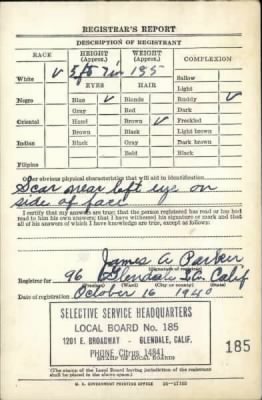 REGISTRAR'S REPORT
DESCRIPTION OF REGISTRANT
RACE HEIGHT (Approx.) WEIGHT (Approx.) COMPLEXION
White ✓ 5ft 7in 185 Sallow
Light
EYES HAIR
Negro Blue ✓ Blonde Ruddy ✓
Gray Red Dark
Oriental Hazel Brown ✓ Freckled
Brown Black Light brown
Indian Black Gray Dark brown
Bald Black
Filipino
Other obvious physical characteristics that will aid in identification
Scar near left eye on
side of face
I certify that my answers are true; that the person registered has read or has had
read to him his own answers; that I have witnessed his signature or mark and that
all of his answers of which I have knowledge are true, except as follows:
James A Parker
(Signature of registrar)
Registrar for 96 Glendale Calif
(City or county) (State)
Date of registration October 16 1940
SELECTIVE SERVICE HEADQUARTERS
LOCAL BOARD No. 185
1201 E. BROADWAY - GLENDALE, CALIF.
PHONE Citrus 14841
185
(STAMP OF LOCAL BOARD)
(The stamp of the Local Board having jurisdiction of the registrant shall be
placed in the above space.)
U. S. GOVERNMENT PRINTING OFFICE 16—17105